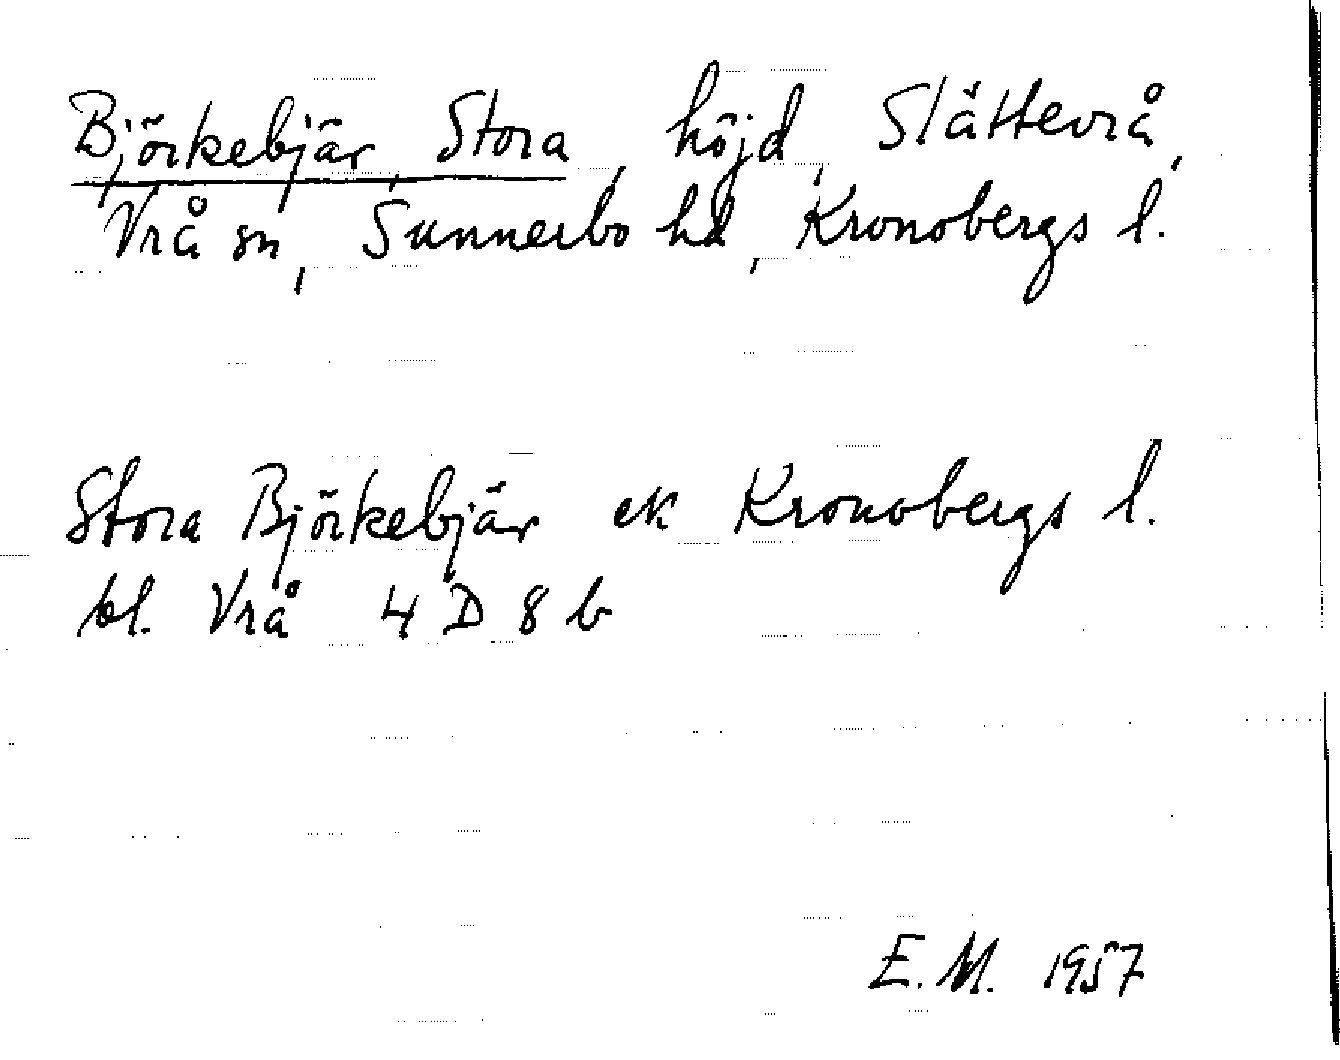 Björkebjär, Stora, höjd, Slättevrå,
Vrå sn, Sunnerbo hd, Kronobergs l.
Stora Björkebjär ek Kronobergs l.
bl. Vrå 4 D 8 b
E. M. 1957